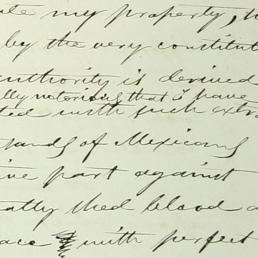 my property,
by the very constitut
authority is derived
ally notorious that I have
ted with such extra
sands of Mexicans
ive part against
ally shed blood
with perfect